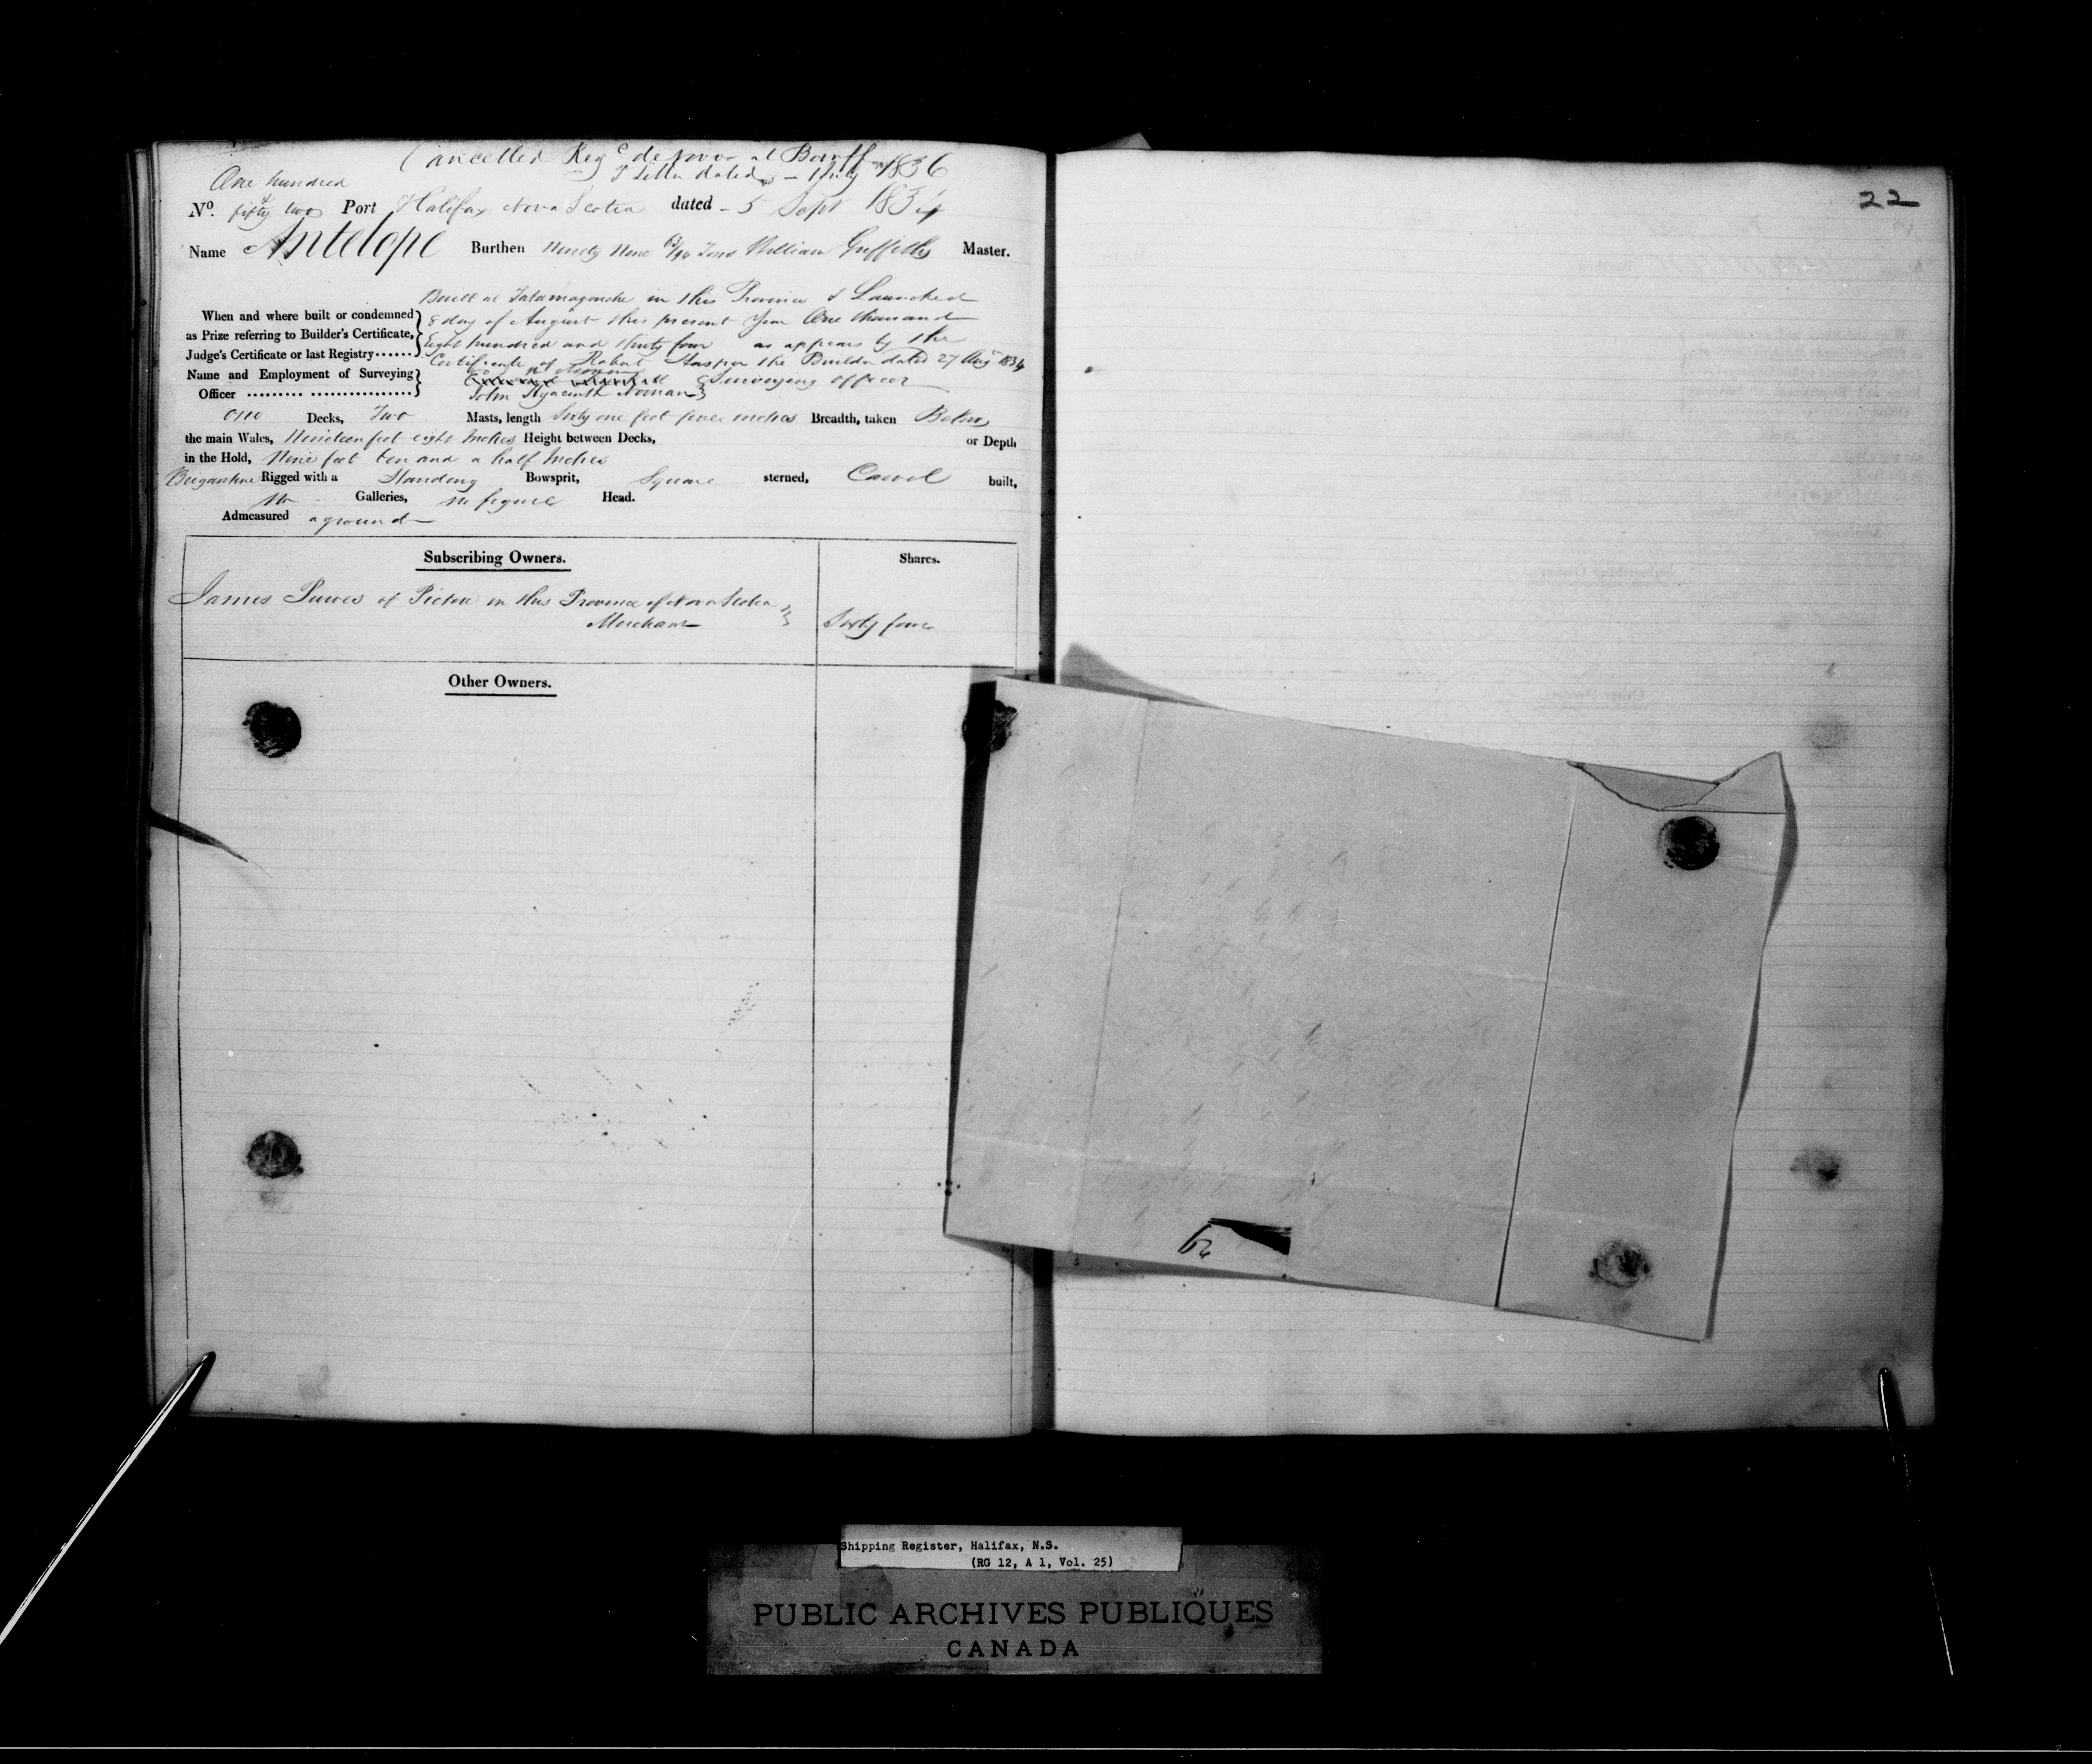 Cancelled Reg^d de novo at Banff
& Letter dated 1 July 1836
22
One hundred
No. fifty two Port Halifax Nova Scotia dated - 5 Sept 1834
Name Antelope Burthen Ninety Nine 63/94 Tons William Griffiths Master.
Built at Tatamagouche in this Province & Launched
When and where built or condemned 8 day of August this present Year One thousand
as Prize referring to Builder's Certificate, Eight hundred and thirty four as appears by the
Judge's Certificate or last Registry...... Certificate of Robert the Builder dated 27 Aug 1834
Name and Employment of Surveying Surveying officer
Officer ......... ................ John Hyacinth Noonan
One Decks, Two Masts, length Sixty one feet four inches Breadth, taken Below
the main Wales, Nineteen feet eight Inches Height between Decks, or Depth
in the Hold, Nine feet ten and a half Inches
Brigantine Rigged with a Standing Bowsprit, Square sterned, Carvel built,
No Galleries, no figure Head.
Admeasured aground
Subscribing Owners. Shares.
James Purves of Pictou in this Province of Nova Scotia
Merchant Sixty four
Other Owners.
Shipping Register, Halifax, N.S.
(RG 12, A 1, Vol. 25)
PUBLIC ARCHIVES PUBLIQUES
CANADA